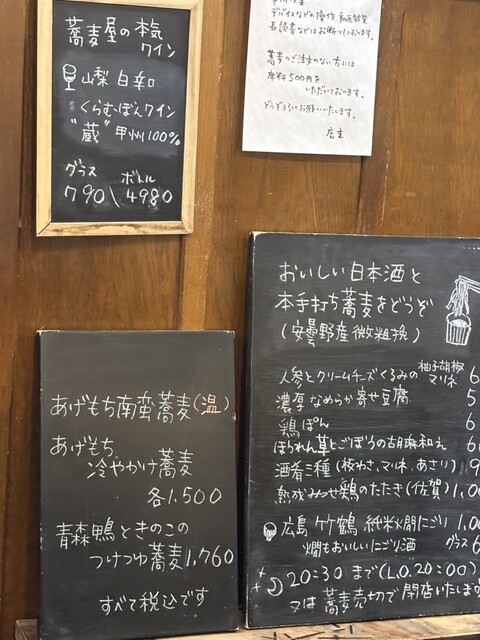 蕎麦屋の本気
ワイン
山梨 白辛口
くらむぼんワイン
"蔵" 甲州100%
グラス ボトル
790\4980
デバイスなどの操作、動画観覧
長読書などはお断りしております。
蕎麦のご注文のない方には
席料500円を
いただいております。
どうぞよろしくお願いいたします。
店主
あげもち南蛮蕎麦(温)
あげもち
冷やかけ蕎麦
各1.500
青森鴨ときのこの
つけつゆ蕎麦1.760
すべて税込です
おいしい日本酒と
本手打ち蕎麦をどうぞ
(安曇野産 微粗挽)
人参とクリームチーズくるみの 柚子胡椒マリネ 6
濃厚なめらか寄せ豆腐 5
鶏ぽん 6
ほうれん草とごぼうの胡麻和え 6
酒肴三種(板わさ、マリネ、あさり) 9
熟成みつせ鶏のたたき(佐賀) 1.0
広島 竹鶴 純米火間にごり 1.0
燗もおいしいにごり酒 グラス6
20:30まで(L.O.20:00)
又は蕎麦売切で閉店いたします